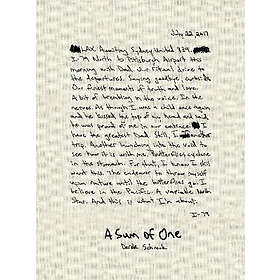 July 22 2017
LAX Awaiting Sydney United 839.
I-79 North to Pittsburgh Airport this
morning with Dad. Our ritual drive to
the departures. Saying goodbye, outside
Our finest moments of truth and love.
A bit of trembling in the voice. In the
nerves. As though I was a child once again
and he kissed the top of my head and said
he was proud of me in our embrace. I
have the greatest Dad. Still, I
trip. Another launching into the void to
see how it is with me. Butterflies cyclone
in the stomach. For that, I know I still
want this. The endeavor to throw myself
upon nature until the butterflies go. I
believe in the Pacific. A variable North
Star. And this is what I'm about.
I-79
A Sum of One
Derek Schneick